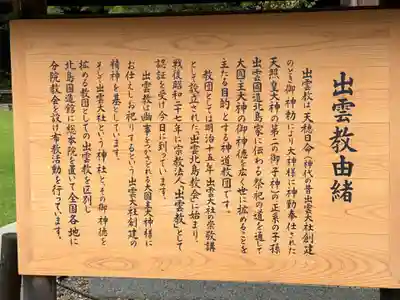 出雲教由緒
出雲教は、天穂日命（神代の昔出雲大社創建
のとき御神勅により大神様に神勤奉仕された
天照皇大神の第二の御子神）の正系の子孫
出雲國造北島家に伝わる祭祀の道を通して
大国主大神の御神徳を広く世に拡めることを
主たる目的とする神道教団です。
教団としては明治十五年出雲大社の崇敬講
として設立された「出雲北島教会」に始まり、
戦後昭和二十七年に宗教法人「出雲教」として
認証を受け今日に到っています。
出雲教は幽事をつかさどれる大国主大神様に
お仕えしお祀りするという出雲大社創建の
精神を基としています。
そして出雲大社という神社と、その御神徳を
拡める教団としての出雲教を区別し
北島国造館に総本部を置いて全国各地に
分院教会を設け布教活動を行っています。